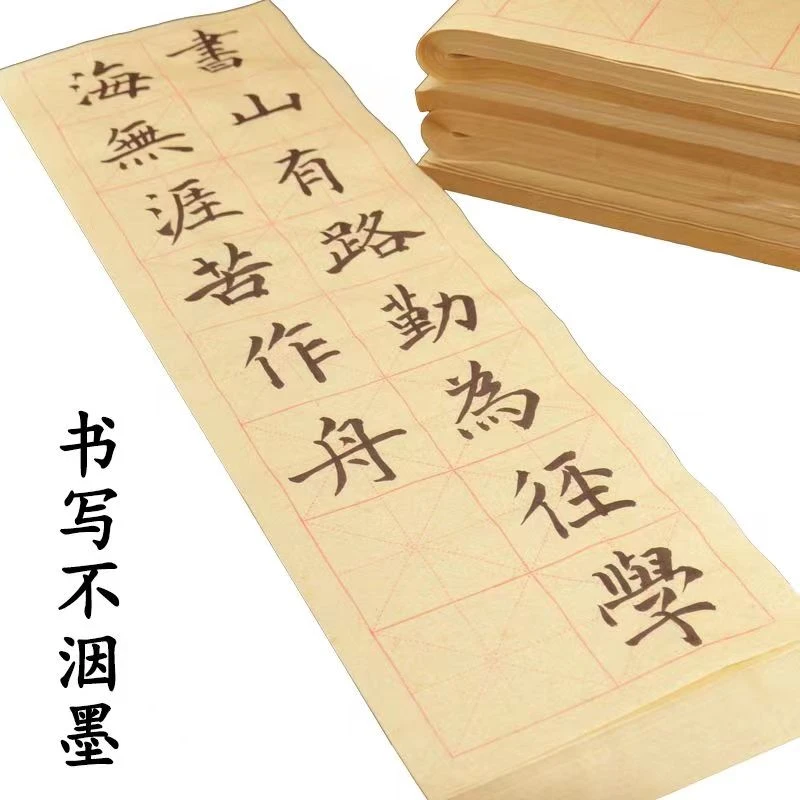 書山有路勤為徑學
海無涯苦作舟
书写不洇墨